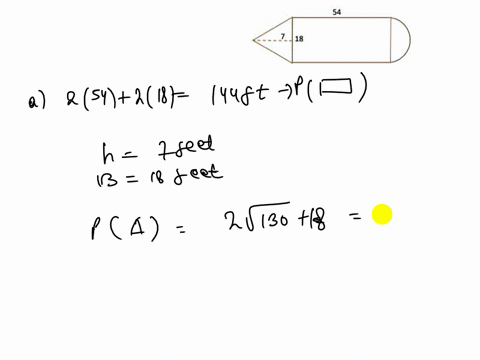 54
7 18
a) 2(54)+2(18)= 144ft → P(▭)
h = 7feet
B = 18 feet
P(Δ) = 2√130 +18 =